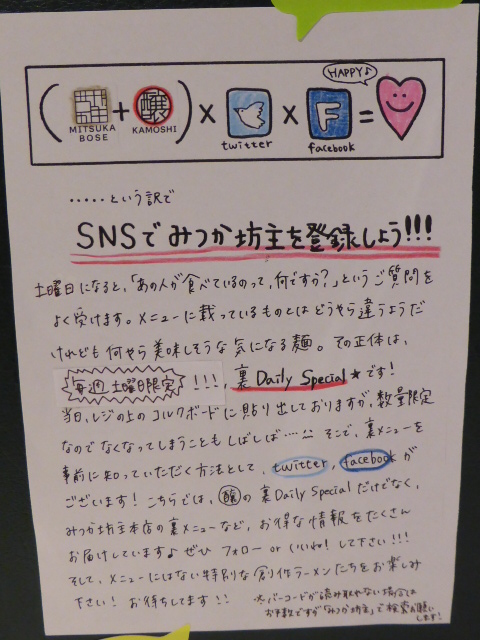 HAPPY♪
( + 醸 ) × × F =
MITSUKA BOSE KAMOSHI twitter facebook
・・・・・という訳で
SNSでみつか坊主を登録しよう!!!
土曜日になると、「あの人が食べているのって、何ですか?」というご質問を
よく受けます。メニューに載っているものとはどうやら違うようだ
けれども何やら美味しそうな気になる麺。その正体は、
毎週土曜日限定!!! 裏Daily Special★です!
当日、レジの上のコルクボードに貼り出しておりますが、数量限定
なのでなくなってしまうこともしばしば…^^ そこで、裏メニューを
事前に知っていただく方法として、twitter、facebookが
ございます!こちらでは、醸の裏Daily Specialだけでなく、
みつか坊主本店の裏メニューなど、お得な情報をたくさん
お届けしていますよ ぜひ フォロー or いいね! して下さい!!!
そして、メニューにはない特別な創作ラーメンたちをお楽しみ
下さい! お待ちしてます!!
※バーコードが読み取れない場合は
お手数ですが「みつか坊主」で検索お願い
します!